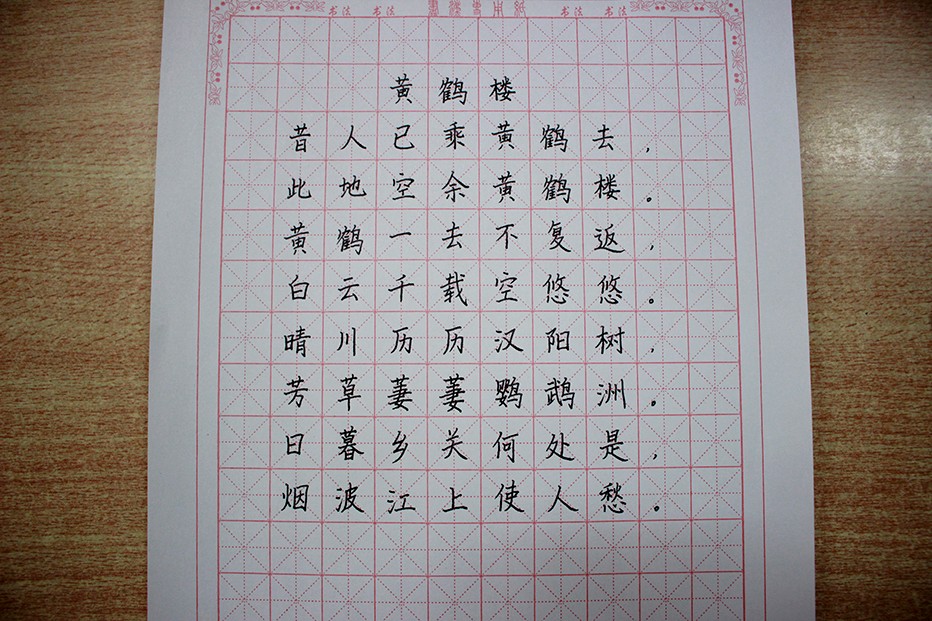 书法 书法 書法專用紙 书法 书法
黄鹤楼
昔人已乘黄鹤去，
此地空余黄鹤楼。
黄鹤一去不复返，
白云千载空悠悠。
晴川历历汉阳树，
芳草萋萋鹦鹉洲。
日暮乡关何处是，
烟波江上使人愁。